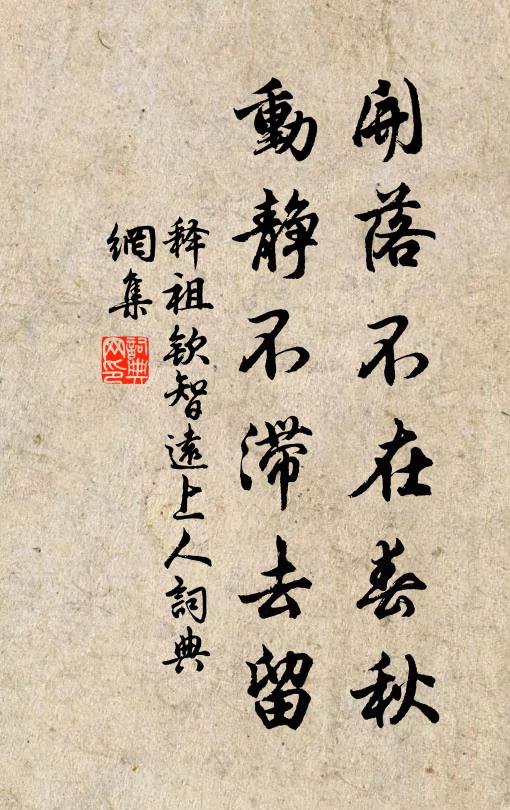 開落不在春秋
動静不滞去留
释祖钦智遠上人詞典
網集
詞典
网印